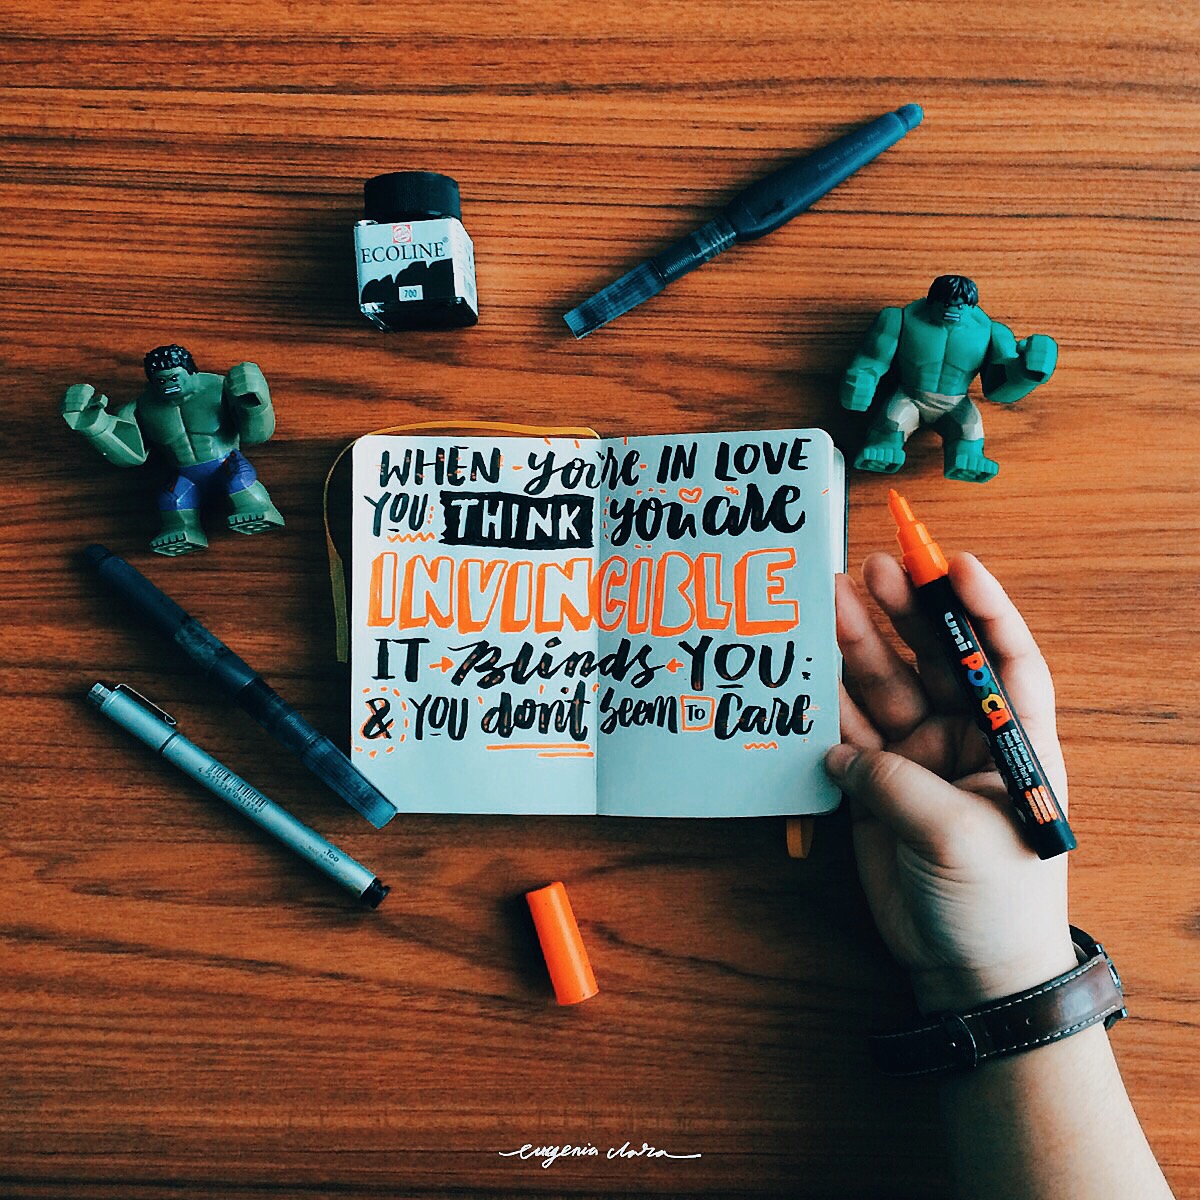 ECOLINE
700
WHEN you're IN LOVE
YOU THINK you are
INVINCIBLE
IT Blinds YOU:
& YOU don't seem TO care
uni POSCA
.Too
eugenia clara